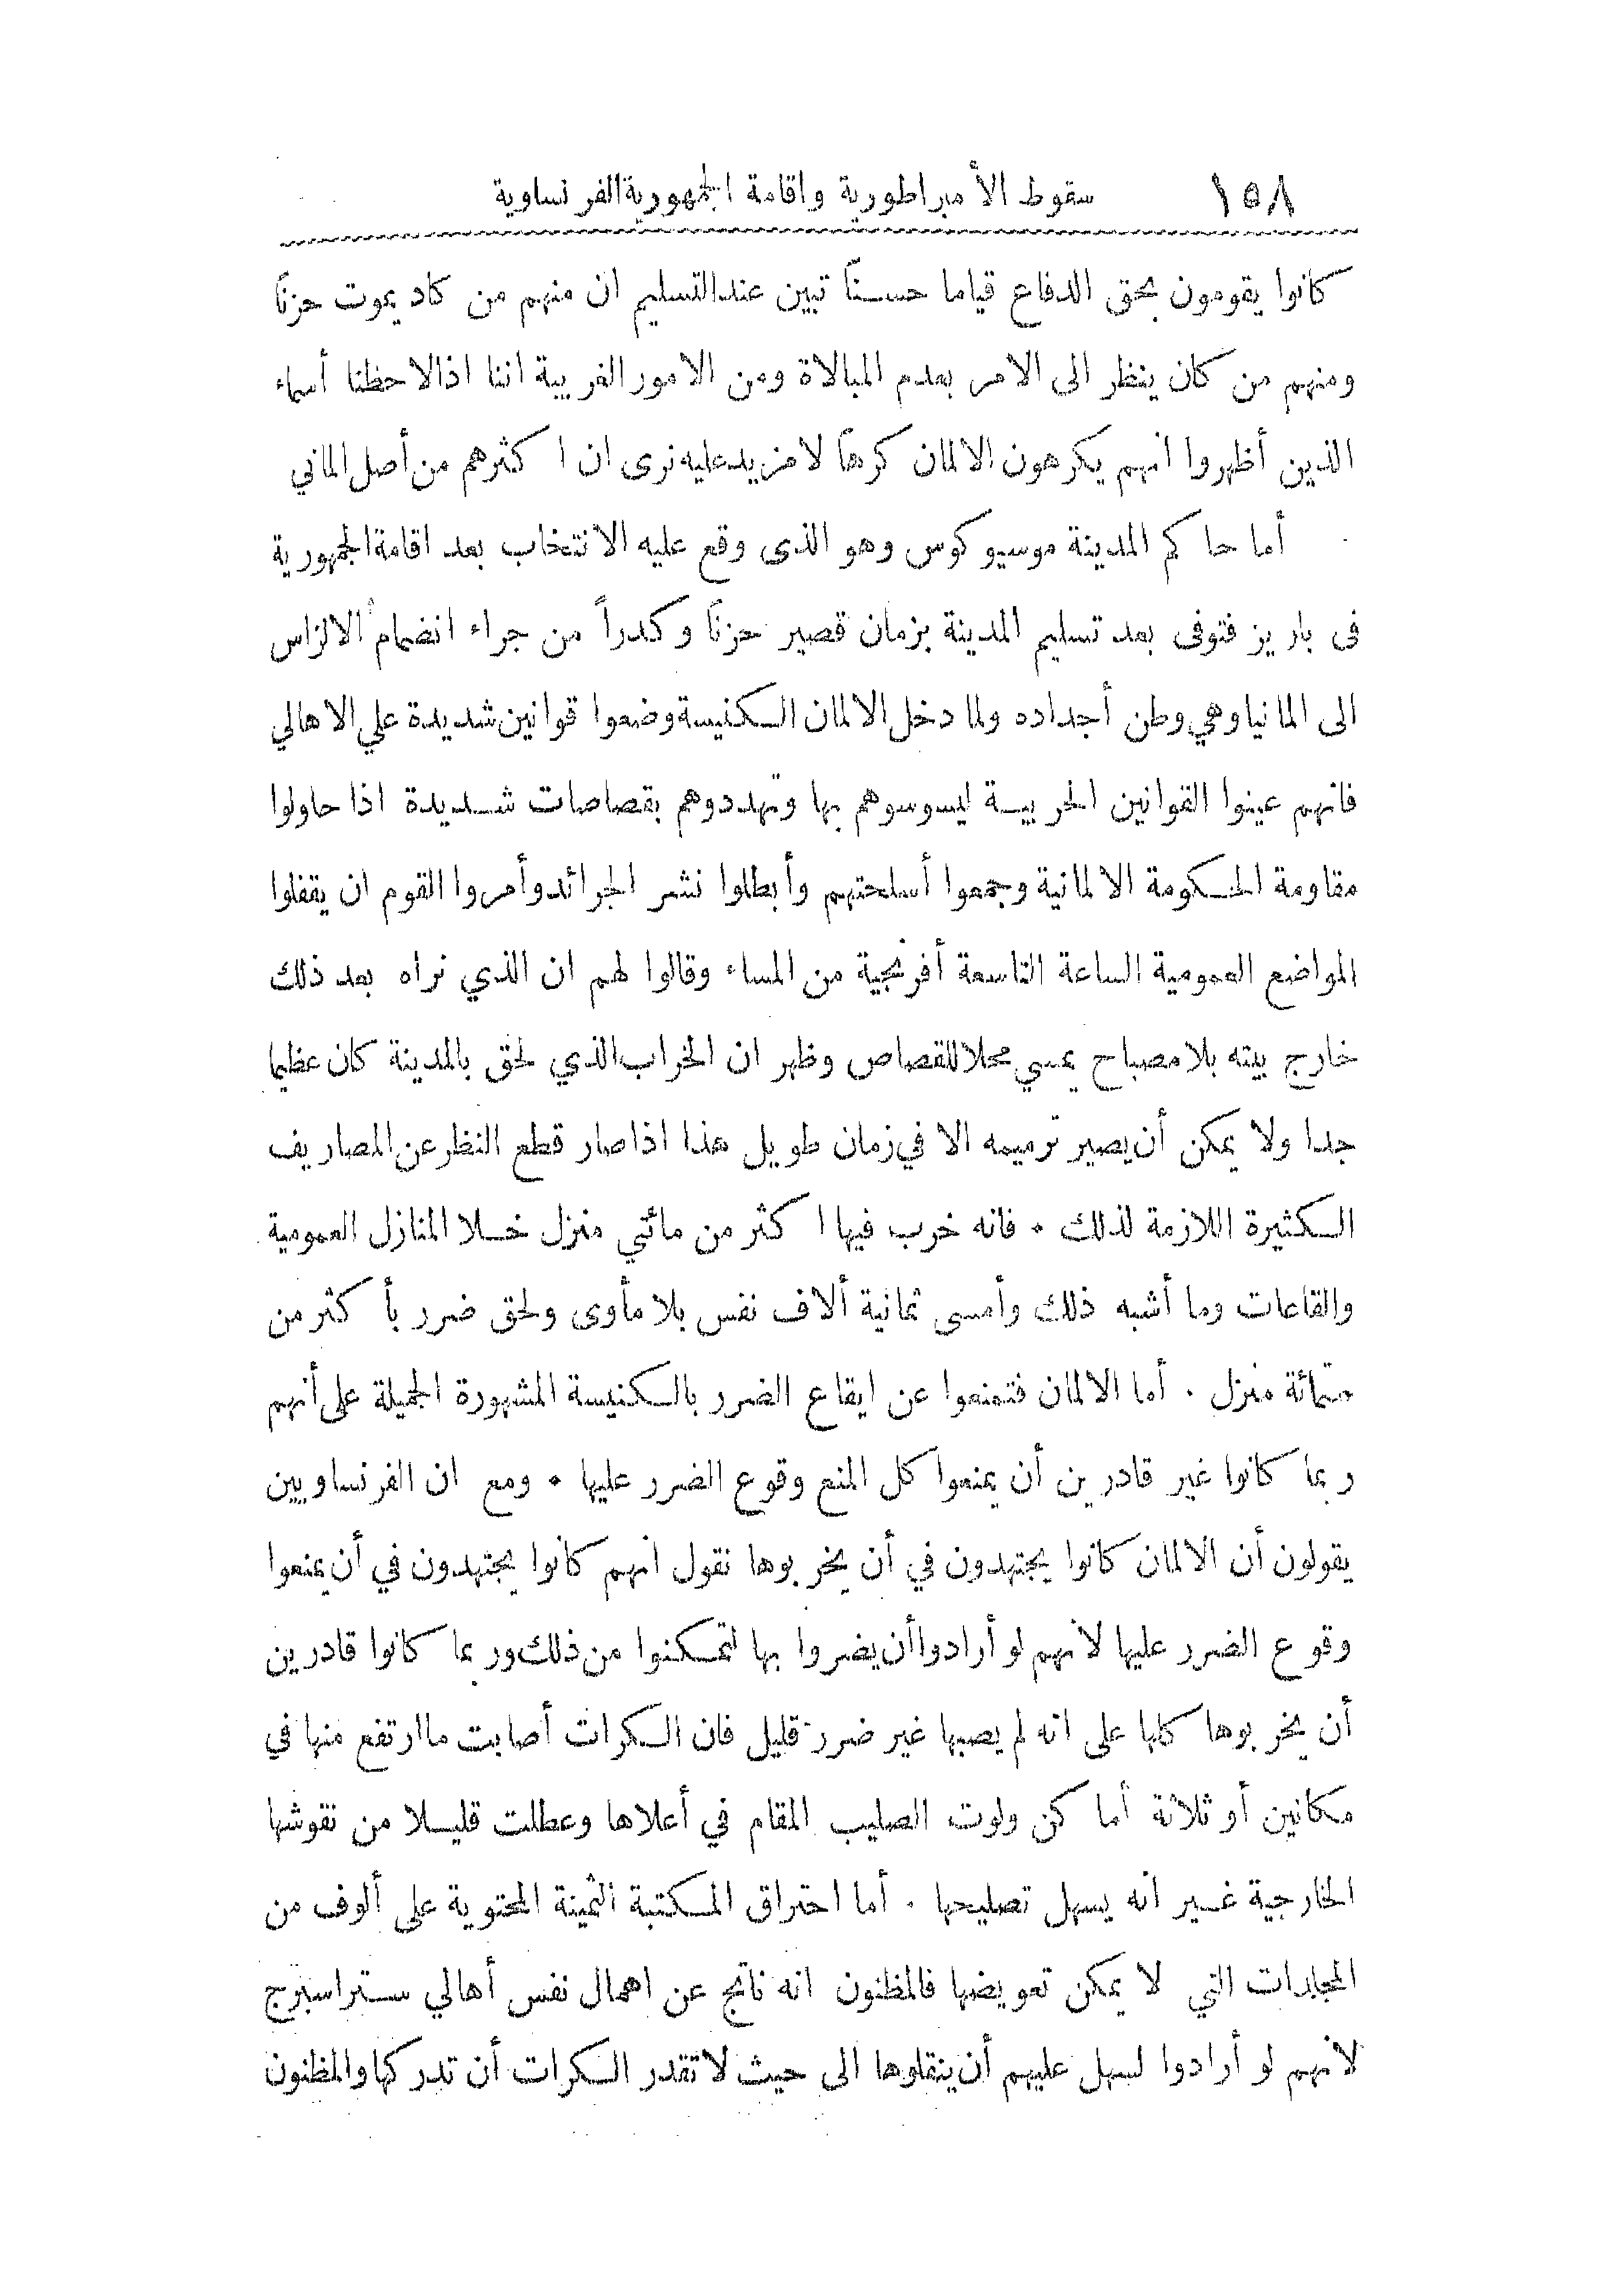 ١٥٨ سقوط الأمبراطورية واقامة الجمهورية الفرنساوية
كانوا يقومون بحق الدفاع قياما حسناً تبين عند التسليم ان منهم من كاد يموت حزناً
ومنهم من كان ينظر الى الامر بعدم المبالاة ومن الامور الغريبة اننا اذا لاحظنا أسماء
الذين أظهروا انهم يكرهون الالمان كرهاً لا مزيد عليه نرى ان اكثرهم من أصل الماني
أما حاكم المدينة موسيو كوس وهو الذى وقع عليه الانتخاب بعد اقامة الجمهورية
فى باريز فتوفى بعد تسليم المدينة بزمان قصير حزناً وكدراً من جراء انضمام الالزاس
الى المانيا وهي وطن أجداده ولما دخل الالمان السكنيسة وضعوا قوانين شديدة علي الاهالي
فانهم عينوا القوانين الحربية ليسوسوهم بها وتهددوهم بقصاصات شديدة اذا حاولوا
مقاومة الحكومة الالمانية وجمعوا أسلحتهم وأبطلوا نشر الجرائد وأمروا القوم ان يقفلوا
المواضع العمومية الساعة التاسعة أفرنجية من المساء وقالوا لهم ان الذي نراه بعد ذلك
خارج بيته بلا مصباح يمسي محلا للقصاص وظهر ان الخراب الذي لحق بالمدينة كان عظيما
جدا ولا يمكن أن يصير ترميمه الا في زمان طويل هذا اذا صار قطع النظر عن المصاريف
الكثيرة اللازمة لذلك • فانه خرب فيها اكثر من مائتي منزل خلا المنازل العمومية
والقاعات وما أشبه ذلك وأمسى ثمانية ألاف نفس بلا مأوى ولحق ضرر بأكثر من
ستمائة منزل . أما الالمان فتمنعوا عن ايقاع الضرر بالكنيسة المشهورة الجميلة على أنهم
ربما كانوا غير قادرين أن يمنعوا كل المنع وقوع الضرر عليها • ومع ان الفرنساويين
يقولون أن الالمان كانوا يجتهدون في أن يخربوها نقول انهم كانوا يجتهدون في أن يمنعوا
وقوع الضرر عليها لانهم لو أرادوا أن يضروا بها لتمكنوا من ذلك وربما كانوا قادرين
أن يخربوها كلها على انه لم يصبها غير ضرر قليل فان الكرات أصابت ما ارتفع منها في
مكانين أو ثلاثة أماكن ولوت الصليب المقام في أعلاها وعطلت قليلا من نقوشها
الخارجية غير انه يسهل تصليحها . أما احتراق المكتبة الثمينة المحتوية على ألوف من
المجلدات التي لا يمكن تعويضها فالمظنون انه ناتج عن اهمال نفس أهالي ستراسبرج
لانهم لو أرادوا لسهل عليهم أن ينقلوها الى حيث لا تقدر الكرات أن تدركها والمظنون